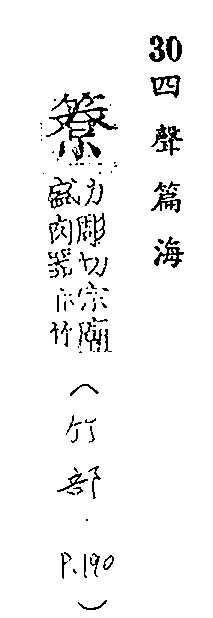 30四聲篇海
簝
力彫切宗廟
盛肉器竹
(竹部.P.190)